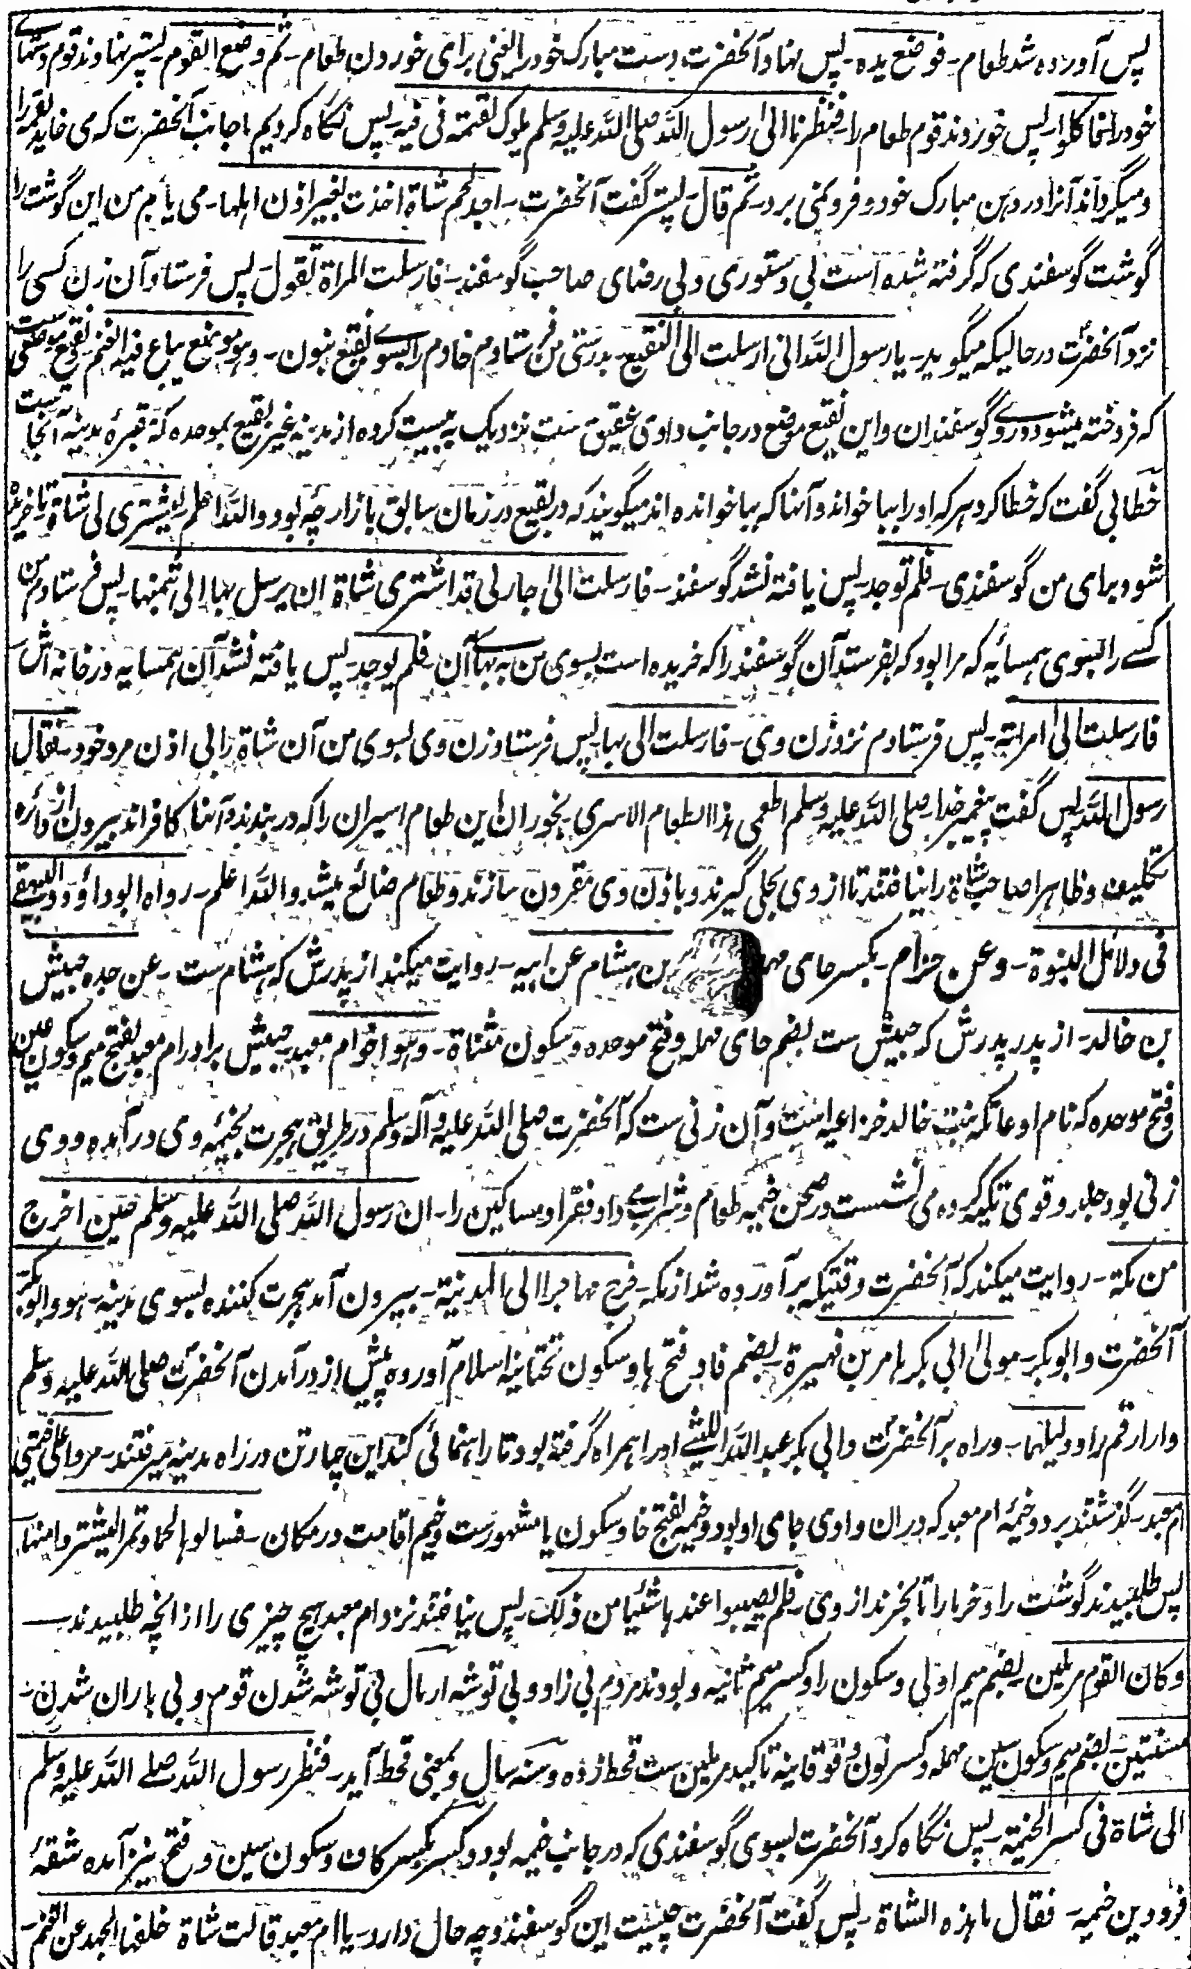 پس آورده شد طعام ـ فوضع یده ـ پس نهاد آنحضرت دست مبارک خود را یعنی برای خوردن طعام ـ ثم وضع القوم ـ پستر نهادند قوم دستهای
خود را فاکلوا ـ پس خوردند قوم طعام را ـ فنظرنا الی رسول الله صلی الله علیه وسلم یلوک لقمته فی فیه ـ پس نگاه کردیم ما جانب آنحضرت که می خاید لقمه را
و میگرداند آنرا در دهن مبارک خود و فرو نمی برد ـ ثم قال ـ پستر گفت آنحضرت ـ اجد لحم شاة اخذت بغیر اذن اهلها ـ می یابم من این گوشت را
گوشت گوسفندی که گرفته شده است بی دستوری و بی رضای صاحب گوسفند ـ فارسلت المراة تقول ـ پس فرستاد آن زن کسی را
نزد آنحضرت در حالیکه میگوید ـ یا رسول الله انی ارسلت الی النقیع ـ بدرستی من فرستادم خادم را بسوے نقیع بنون ـ وهو موضع یباع فیه الغنم ـ نقیع موضعی ست
که فروخته میشود دروے گوسفندان و این نقیع موضع در جانب وادی عقیق ست نزدیک به بیست کروه از مدینه غیر بقیع بموحده که مقبرهٔ مدینه آنجا ست
خطابی گفت که خطا کرد هر که او را ببا خواند و آنها که ببا خوانده اند میگویند که در بقیع در زمان سابق بازارچه بود والله اعلم لیشتری لی شاة تا خریده
شود برای من گوسفندی ـ فلم توجد ـ پس یافته نشد گوسفند ـ فارسلت الی جار لی قد اشتری شاة ان یرسل بها الی بثمنها ـ پس فرستادم من
کسے را بسوی همسائه که مرا بود که بفرستد آن گوسفند را که خریده است بسوی من به بهاے آن ـ فلم یوجد ـ پس یافته نشد آن همسایه در خانه اش
فارسلت الی امراته ـ پس فرستادم نزد زن وی ـ فارسلت الی بها ـ پس فرستاد زن وی بسوی من آن شاة را بی اذن مرد خود ـ فقال
رسول الله ـ پس گفت پیغمبر خدا صلی الله علیه وسلم اطعمی هذا الطعام الاسری ـ بخوران این طعام اسیران را که در بندند و آنها کافراند بیرون از دائره
تکلیف و ظاهرا صاحب شاة را نیافتند تا از وی بحلی گیرند و باذن وی مقرون سازند و طعام ضائع میشد والله اعلم ـ رواه ابو داؤد والبیهقے
فی دلائل النبوة ـ وعن حزام ـ بکسر حای مهم بن هشام عن ابیه ـ روایت میکند از پدرش که هشام ست ـ عن جده حبیش
بن خالد ـ از پدر پدرش که حبیش ست بضم حای مهمله و فتح موحده و سکون مثناة ـ وهو اخو ام معبد ـ حبیش برادر ام معبد بفتح میم و سکون عین
و فتح موحده که نام او عاتکه بنت خالد خزاعیه است و آن زنی ست که آنحضرت صلی الله علیه وآله وسلم در طریق هجرت بخیمه وی در آمده و وی
زنی بود جلد و قوی تکیه کرده می نشست در صحن خیمه طعام و شرابے داد فقرا و مساکین را ـ ان رسول الله صلی الله علیه وسلم حین اخرج
من مکة ـ روایت میکند که آنحضرت وقتیکه بر آورده شد از مکه ـ خرج مهاجرا الی المدینة ـ بیرون آمد هجرت کننده بسوی مدینه ـ هو و ابو بکر
آنحضرت و ابو بکر ـ مولی ابی بکر عامر بن فهیرة ـ بضم فا و فتح ها و سکون تحتانیه اسلام آورده پیش از در آمدن آنحضرت صلی الله علیه وسلم
دار ارقم را و دلیلهما ـ و راه بر آنحضرت و ابی بکر عبد الله اللیثے او را همراه گرفته بود تا راهنمائی کند این چهار تن در راه مدینه میرفتند ـ مروا علی خیمتی
ام معبد ـ گذشتند بر دو خیمهٔ ام معبد که در ان وادی جای او بود و خیمه بفتح خا و سکون یا مشهورست و خیم اقامت در مکان ـ فسالوها لحما و تمرا لیشتروا منها
پس طلبیدند گوشت را و خرما را تا بخرند از وی ـ فلم یصیبوا عندها شیئا من ذلک ـ پس نیافتند نزد ام معبد هیچ چیزی را از انچه طلبیدند ـ
وکان القوم مرملین ـ بضم میم اولی و سکون را و کسر میم ثانیه و بودند مردم بی زاد و بی توشه ارمال بی توشه شدن قوم و بی باران شدن ـ
مسنتین ـ بضم میم و سکون سین مهمله و کسر نون و فوقانیه تاکید مرملین ست قحط زده و سنه سال و بمعنی قحط آید ـ فنظر رسول الله صلے الله علیه وسلم
الی شاة فی کسر الخیمة ـ پس نگاه کرد آنحضرت بسوی گوسفندی که در جانب خیمه بود و کسر بکسر کاف و سکون سین و فتح نیز آمده شقهٔ
فرودین خیمه ـ فقال ما هذه الشاة ـ پس گفت آنحضرت چیست این گوسفند و چه حال دارد ـ یا ام معبد قالت شاة خلفها الجهد عن الغنم ـ